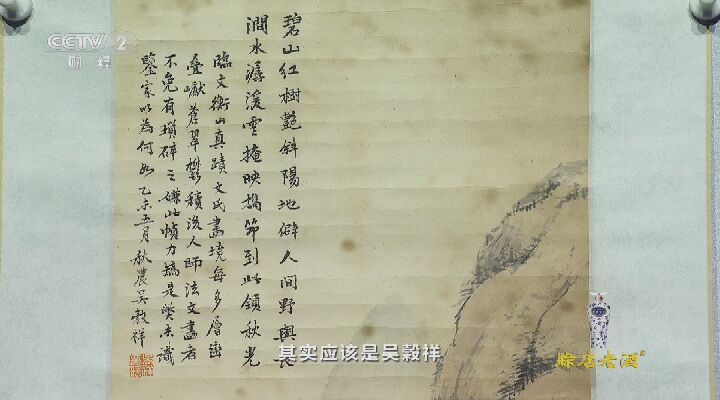 CCTV 2
财经
碧山紅樹豔斜陽地僻人間野興長
澗水潺湲雲掩映攜筇到此領秋光
臨文衡山真蹟文氏畫境每多層巒
疊巘蒼翠鬱積後人師法文畫者
不免有瑣碎之嫌此幀力矯是弊未識
鑒家以為何如乙未五月秋農吳穀祥
其实应该是吴榖祥
赊店老酒